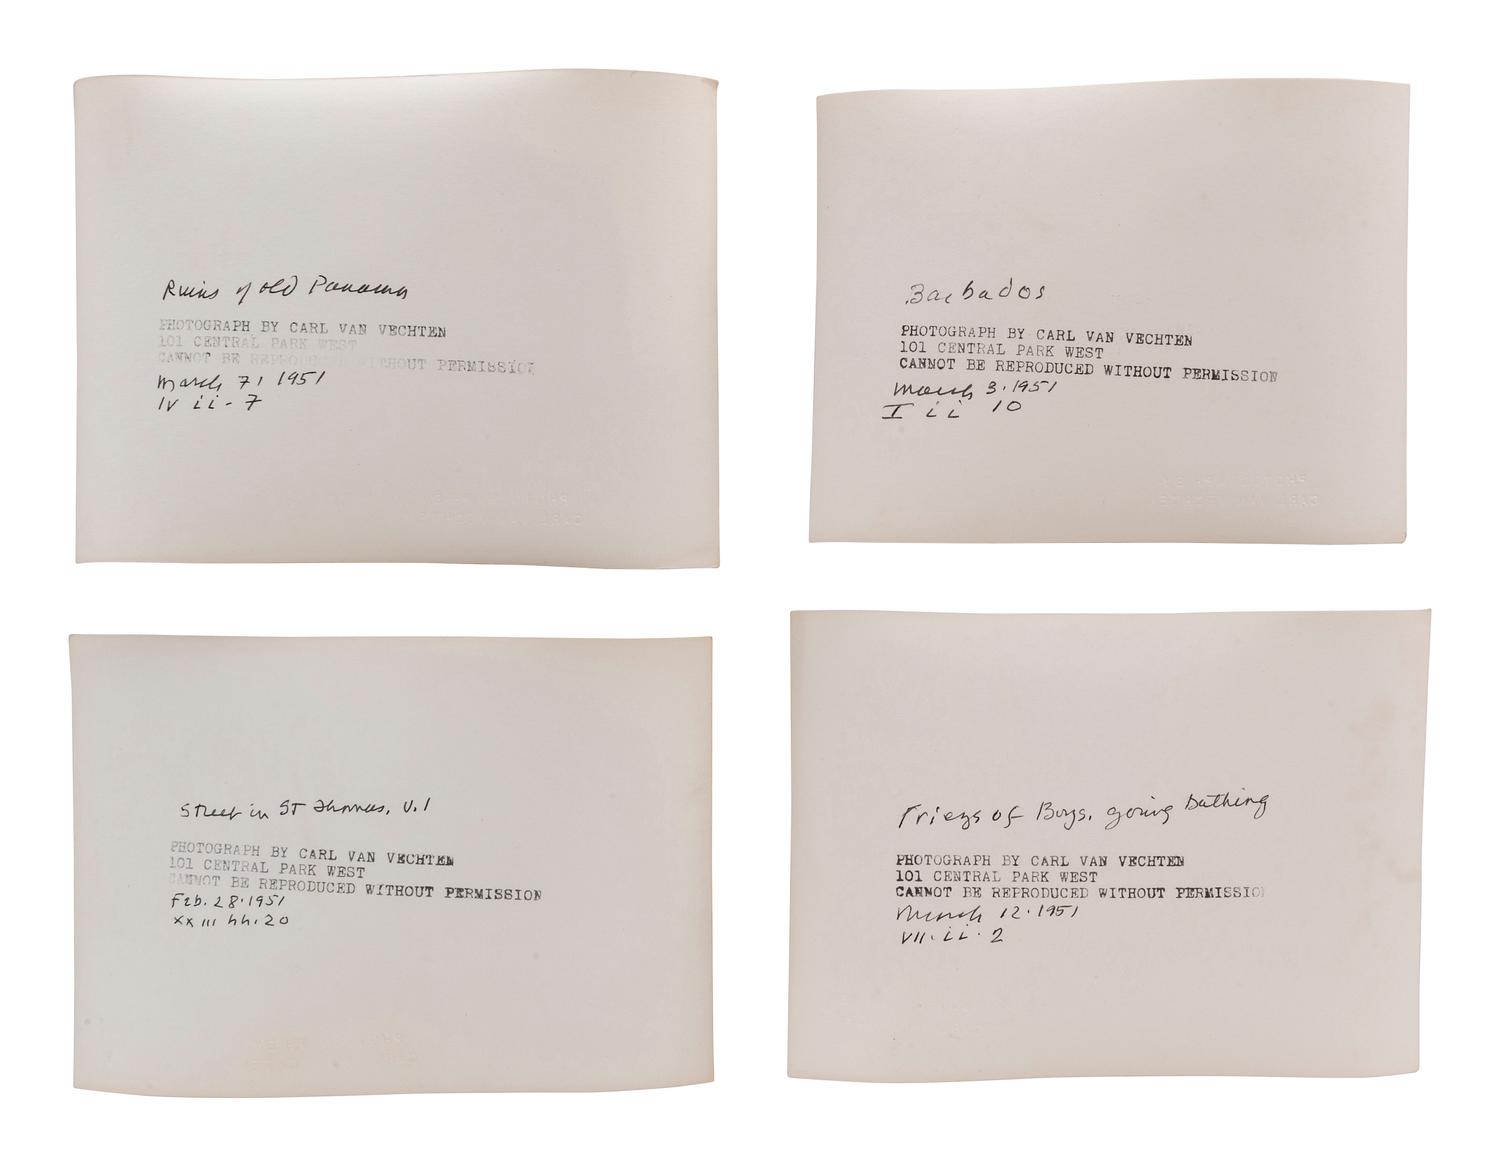 Ruins of old Panama
PHOTOGRAPH BY CARL VAN VECHTEN
101 CENTRAL PARK WEST
CANNOT BE REPRODUCED WITHOUT PERMISSION
March 7, 1951
IV ii - 7
Barbados
PHOTOGRAPH BY CARL VAN VECHTEN
101 CENTRAL PARK WEST
CANNOT BE REPRODUCED WITHOUT PERMISSION
March 3. 1951
I ii 10
Street in St Thomas, V.I
PHOTOGRAPH BY CARL VAN VECHTEN
101 CENTRAL PARK WEST
CANNOT BE REPRODUCED WITHOUT PERMISSION
Feb. 28. 1951
XXIII hh. 20
of Boys, going bathing
PHOTOGRAPH BY CARL VAN VECHTEN
101 CENTRAL PARK WEST
CANNOT BE REPRODUCED WITHOUT PERMISSION
March 12. 1951
VII. ii. 2